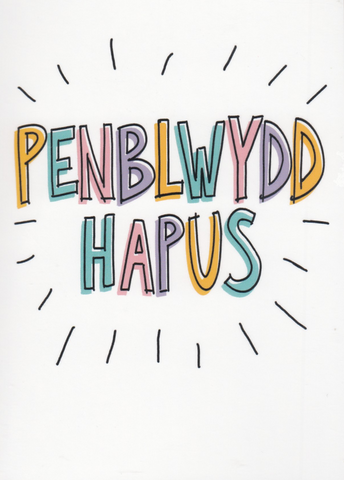 PENBLWYDD
HAPUS